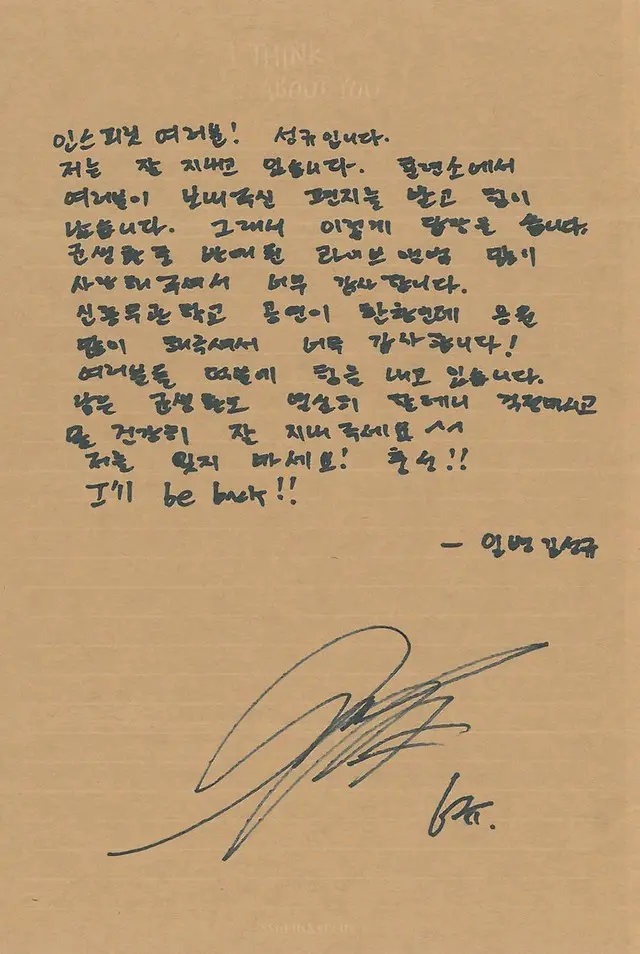 I THINK
ABOUT YOU
인스피릿 여러분! 성규입니다.
저는 잘 지내고 있습니다. 훈련소에서
여러분이 보내주신 편지를 받고 힘이
났습니다. 그래서 이렇게 답장을 씁니다.
군생활을 반여 된 라이브 앨범 많이
사랑해주셔서 너무 감사합니다.
신흥무관학교 공연이 한창인데 응원
많이 해주셔서 너무 감사합니다!
여러분들 덕분에 힘을 내고 있습니다.
남은 군생활도 열심히 할테니 걱정마시고
몸 건강히 잘 지내주세요 ^^
저를 잊지 마세요! 충성!!
I'll be back!!
- 일병 김성규